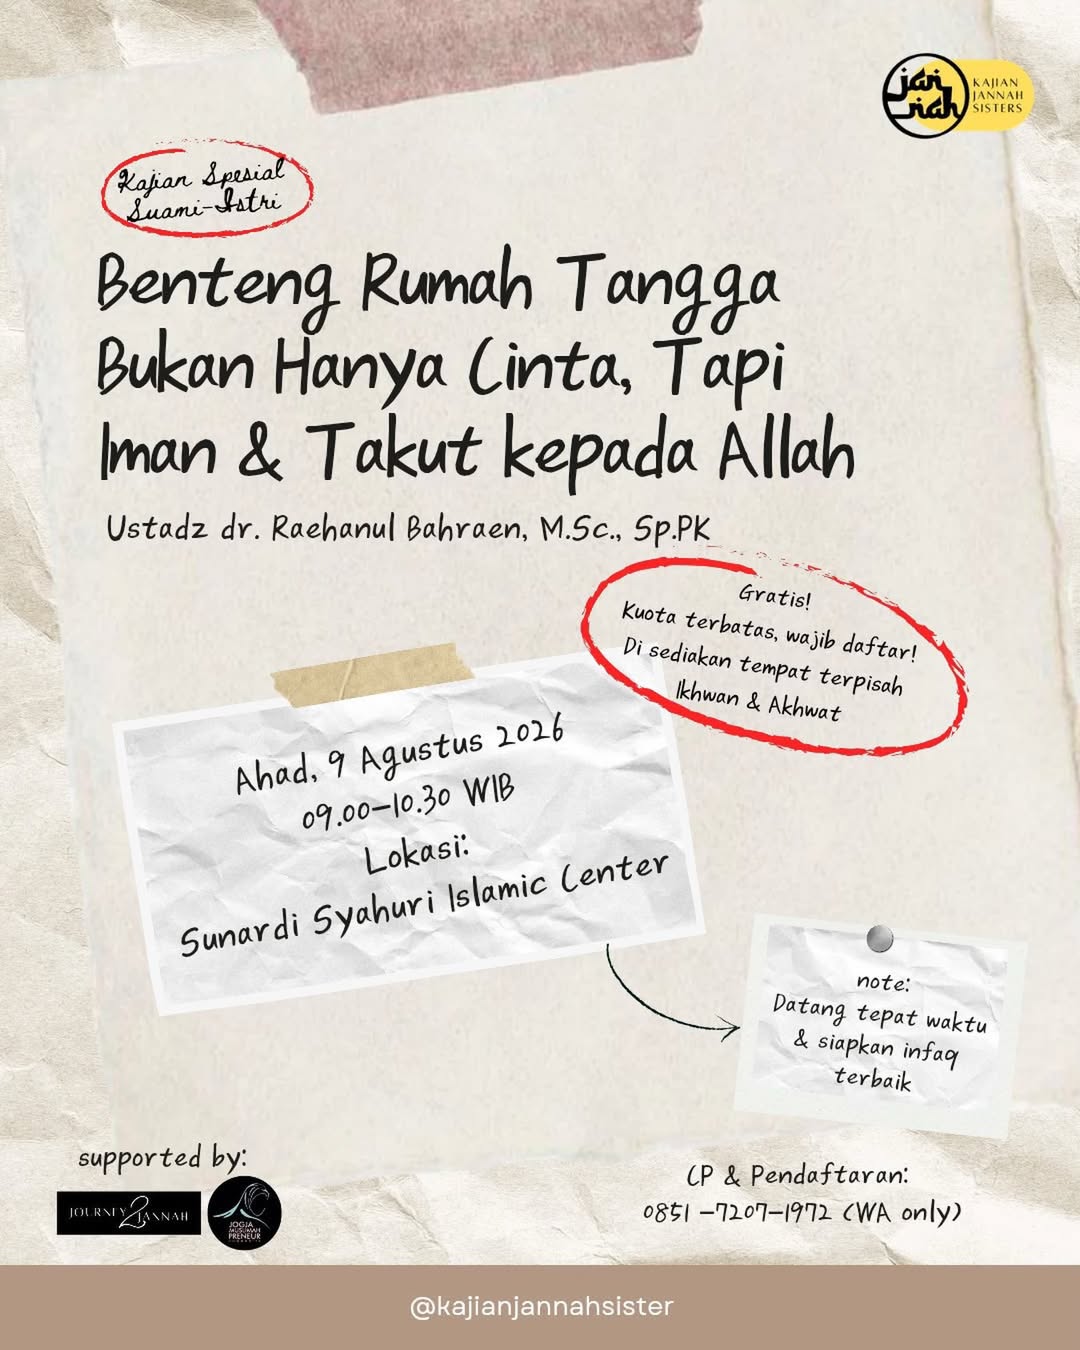 jannah
KAJIAN
JANNAH
SISTERS
Kajian Spesial
Suami-Istri
Benteng Rumah Tangga
Bukan Hanya Cinta, Tapi
Iman & Takut kepada Allah
Ustadz dr. Raehanul Bahraen, M.Sc., Sp.PK
Gratis!
Kuota terbatas, wajib daftar!
Di sediakan tempat terpisah
Ikhwan & Akhwat
Ahad, 9 Agustus 2026
09.00-10.30 WIB
Lokasi:
Sunardi Syahuri Islamic Center
note:
Datang tepat waktu
& siapkan infaq
terbaik
supported by:
JOURNEY 2 JANNAH
JOGJA
MUSLIMAH
PRENEUR
CP & Pendaftaran:
0851 -7207-1972 (WA only)
@kajianjannahsister